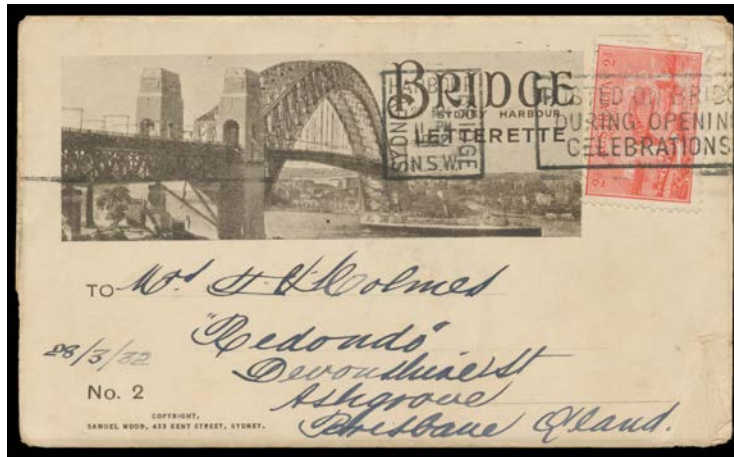 BRIDGE
SYDNEY HARBOUR
LETTERETTE
SYDNEY HARBOUR BRIDGE
PM
32
N.S.W.
2
2
POSTED ON BRIDG
DURING OPENIN
CELEBRATIONS
TO Mrs H. V. Holmes
"Redondo"
28/3/32
Devonshire St
No. 2
Ashgrove
Brisbane Q'land.
COPYRIGHT.
SAMUEL WOON, 433 KENT STREET, SYDNEY.